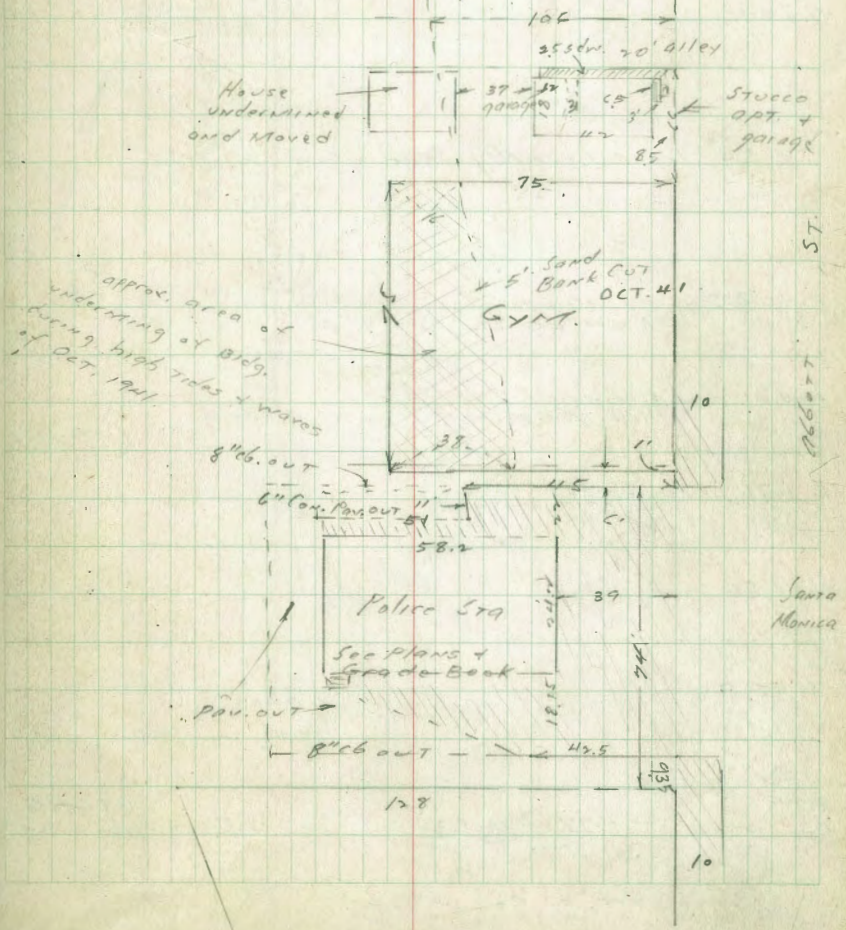 106
25 sdw. 20' alley
House
undermined
and Moved
37
garage
12
18
65
3'
42
85
Stucco
apt. +
garage
75
16
5' Sand
Bank Cut
OCT. 41
Gym.
approx. area of
undermining of Bldg.
during high tides & waves
of OCT. 1941
ST.
Abbott
10
38
1'
8" Cb. out
45
6" Con. Pav. out 11
51
22
6.
58.2
Police Sta
39
Santa
Monica
See Plans &
Grade Book
18.15
Pav. out
8" Cb out
42.5
9.35
128
10